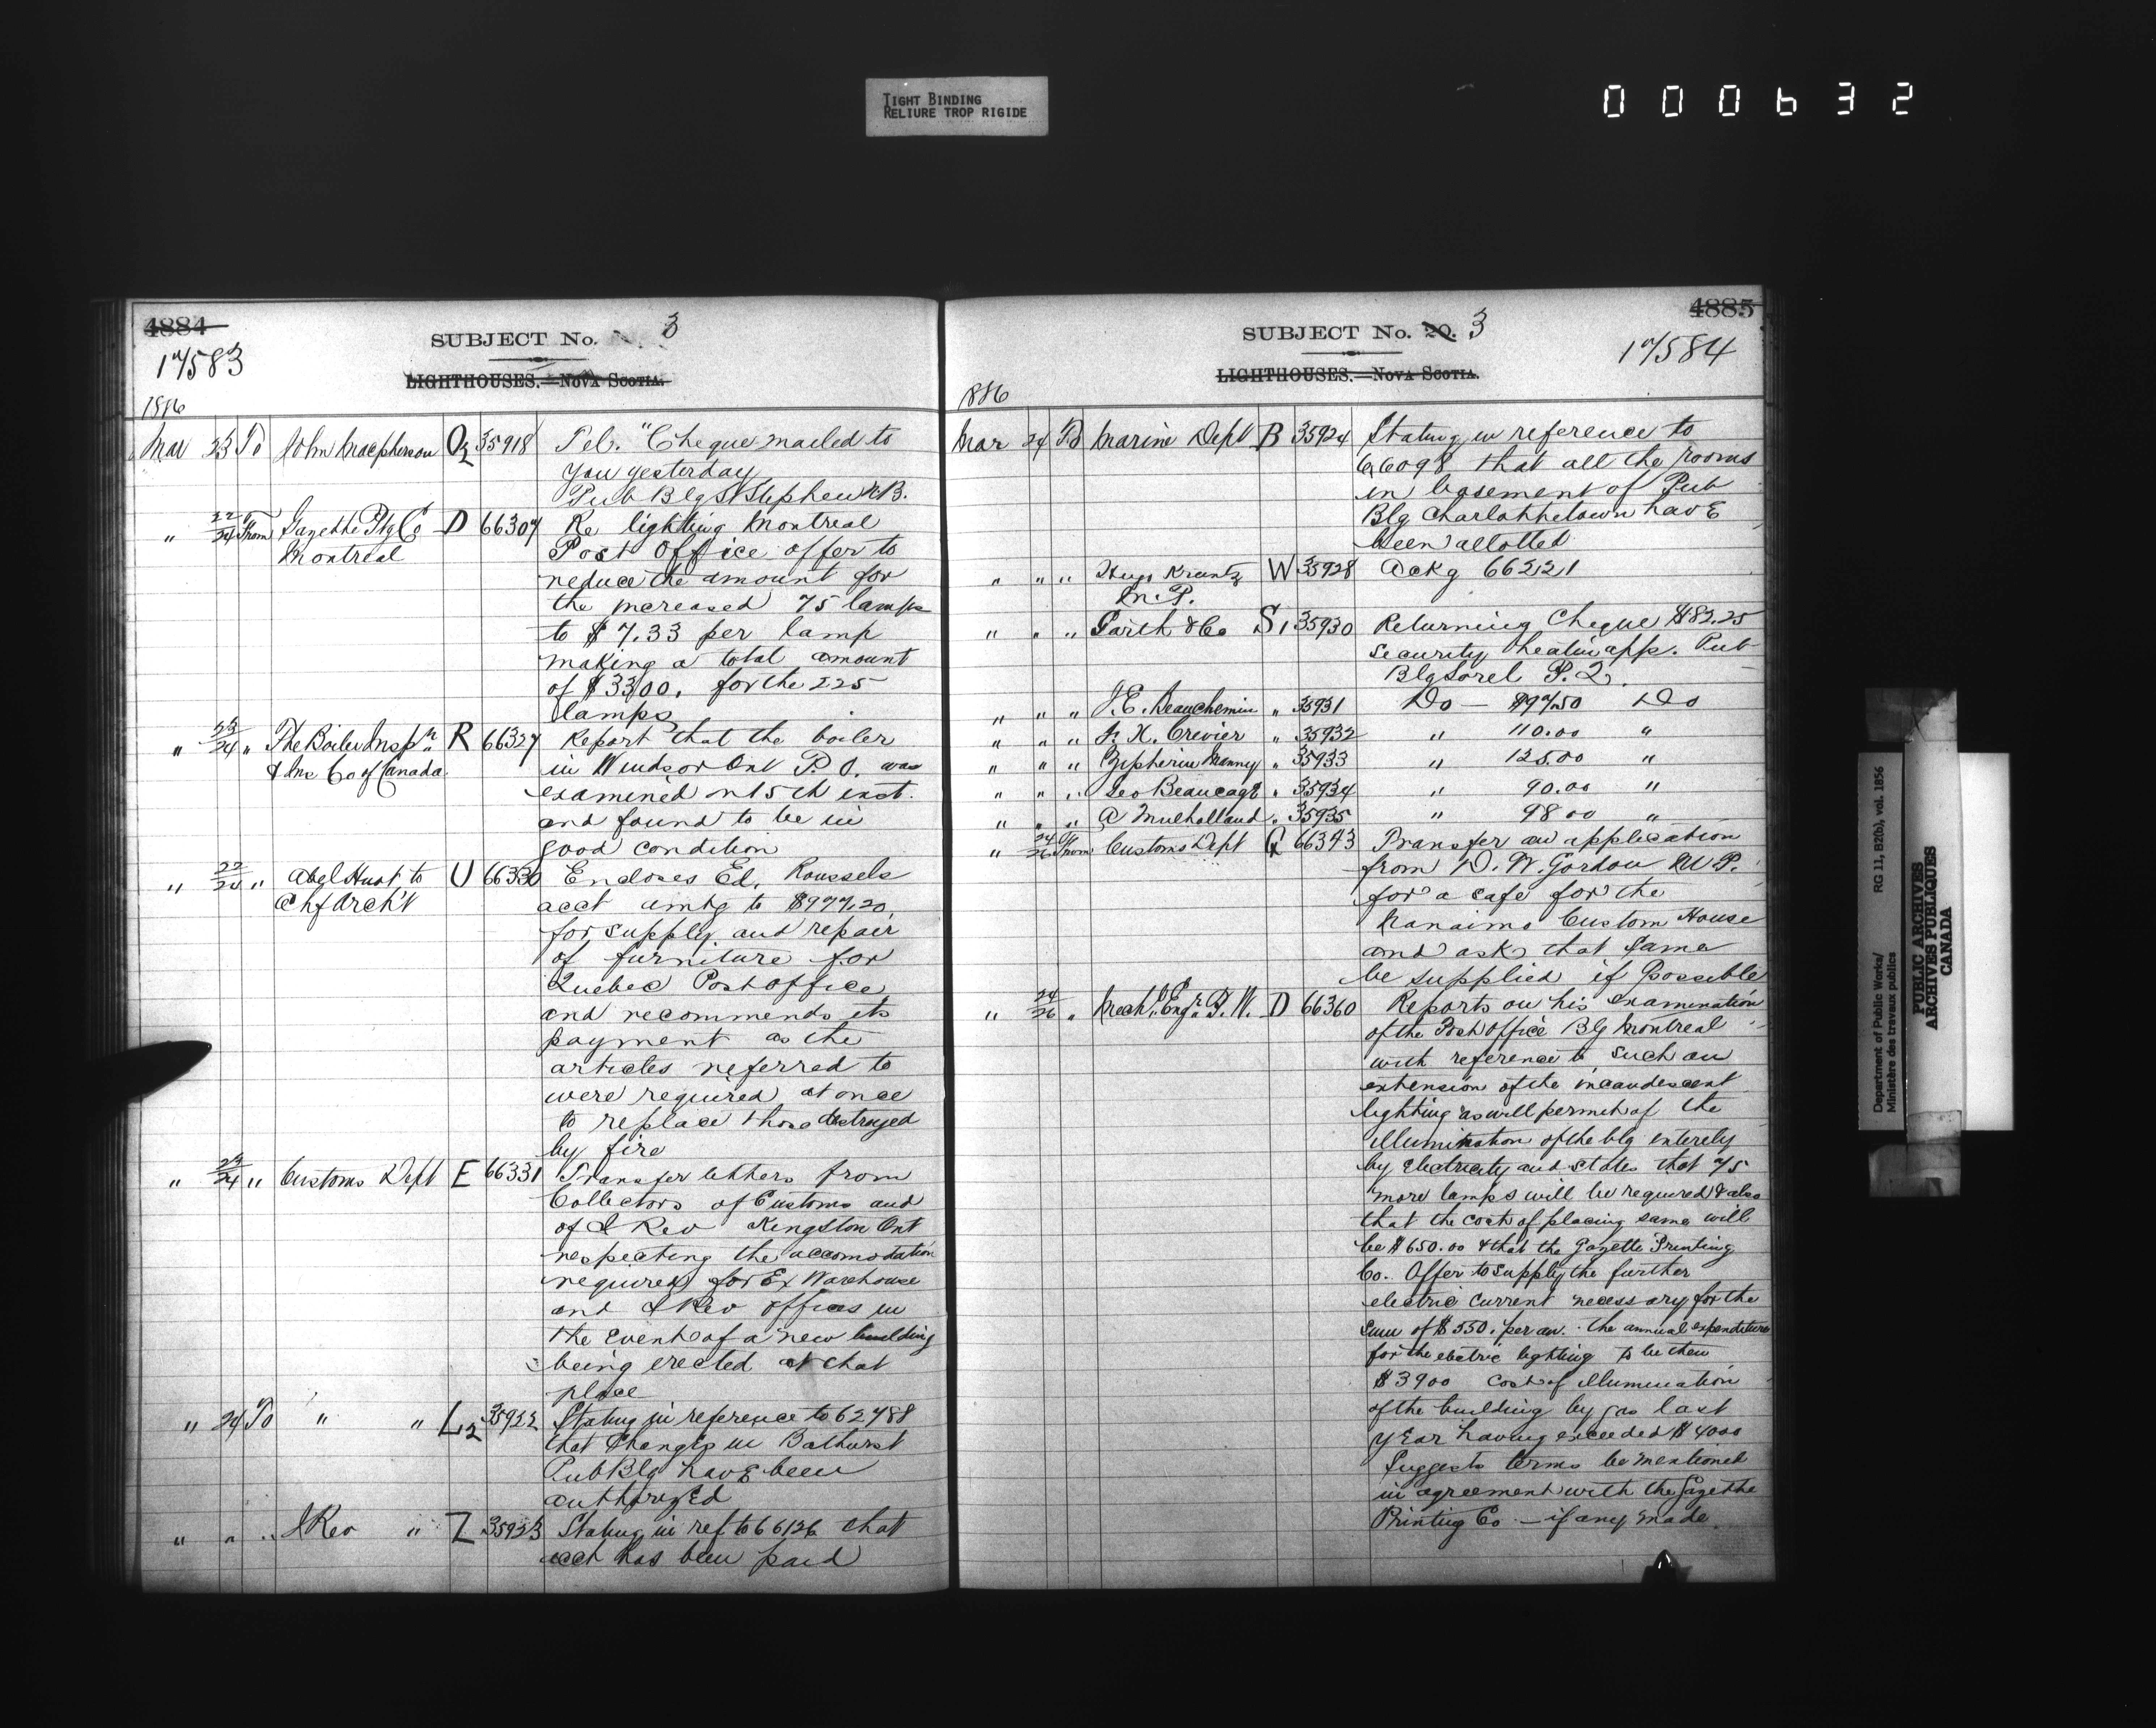 TIGHT BINDING
RELIURE TROP RIGIDE
000632
4884
SUBJECT No. 3
17583
LIGHTHOUSES.—NOVA SCOTIA.
1886
Mar 23 To John Macpherson O2 35918 Tel. "Cheque mailed to
you yesterday
Pub Blg St Stephen N.B.
" 22/24 From Gazette Ptg Co D 66307 Re lighting Montreal
Montreal Post Office offer to
reduce the amount for
the increased 75 lamps
to $7.33 per lamp
making a total amount
of $3300. for the 225
lamps
" 23/24 " The Boiler Inspn R 66327 Report that the boiler
& Ins Co of Canada in Windsor Ont P.O. was
examined on 15th inst.
and found to be in
good condition
" 22/24 " Abel Huot to U 66330 Encloses Ed. Roussels
Chf Arch't acct amtg to $977.20
for supply and repair
of furniture for
Quebec Post office
and recommends its
payment as the
articles referred to
were required at once
to replace those destroyed
by fire
" 24/24 " Customs Dept E 66331 Transfer letters from
Collectors of Customs and
of I Rev Kingston Ont
respecting the accomodation
required for Ex Warehouse
and I Rev offices in
the event of a new building
being erected at that
place
" 24 To " " L2 35922 Stating in reference to 62488
that changes in Bathurst
Pub Blg have been
authorized
" " " I Rev " Z 35923 Stating in ref to 66126 that
acct has been paid
4885
SUBJECT No. 20. 3
17584
LIGHTHOUSES.—NOVA SCOTIA.
1886
Mar 24 To Marine Dept B 35924 Stating in reference to
66098 that all the rooms
in basement of Pub
Blg Charlottetown have
been allotted
" " " Hugo Krantz W 35928 Ackg 66221
M.P.
" " " Garth & Co S1 35930 Returning Cheque $182.25
security heatin app. Pub
Blg Sorel P.Q.
" " " J.E. Beauchemin " 35931 Do — $97.50 Do
" " " Crevier " 35932 " 110.00 "
" " " Zepherin Manny " 35933 " 125.00 "
" " " Geo Beaucage " 35934 " 90.00 "
" " " A Mulholland " 35935 " 98 00 "
" 24/26 From Customs Dept Q 66343 Transfer an application
from D. W. Gordon M.P.
for a safe for the
Nanaimo Custom House
and asks that same
be supplied if possible
" 24/26 " Mechl Engr P.W. D 66360 Reports on his examination
of the Post Office Blg Montreal
with reference to such an
extension of the incandescent
lighting as will permit of the
illumination of the blg entirely
by electricity and states that 75
more lamps will be required & also
that the cost of placing same will
be $650.00 & that the Gazette Printing
Co. Offer to supply the further
electric current necessary for the
sum of $550. per an. the annual expenditure
for the electric lighting to be then
$3900 cost of illumination
of the building by gas last
year having exceeded $4000
Suggests terms be mentioned
in agreement with the Gazette
Printing Co — if any made
Department of Public Works/ RG 11, B2(b), vol. 1856
Ministère des travaux publics
PUBLIC ARCHIVES
ARCHIVES PUBLIQUES
CANADA